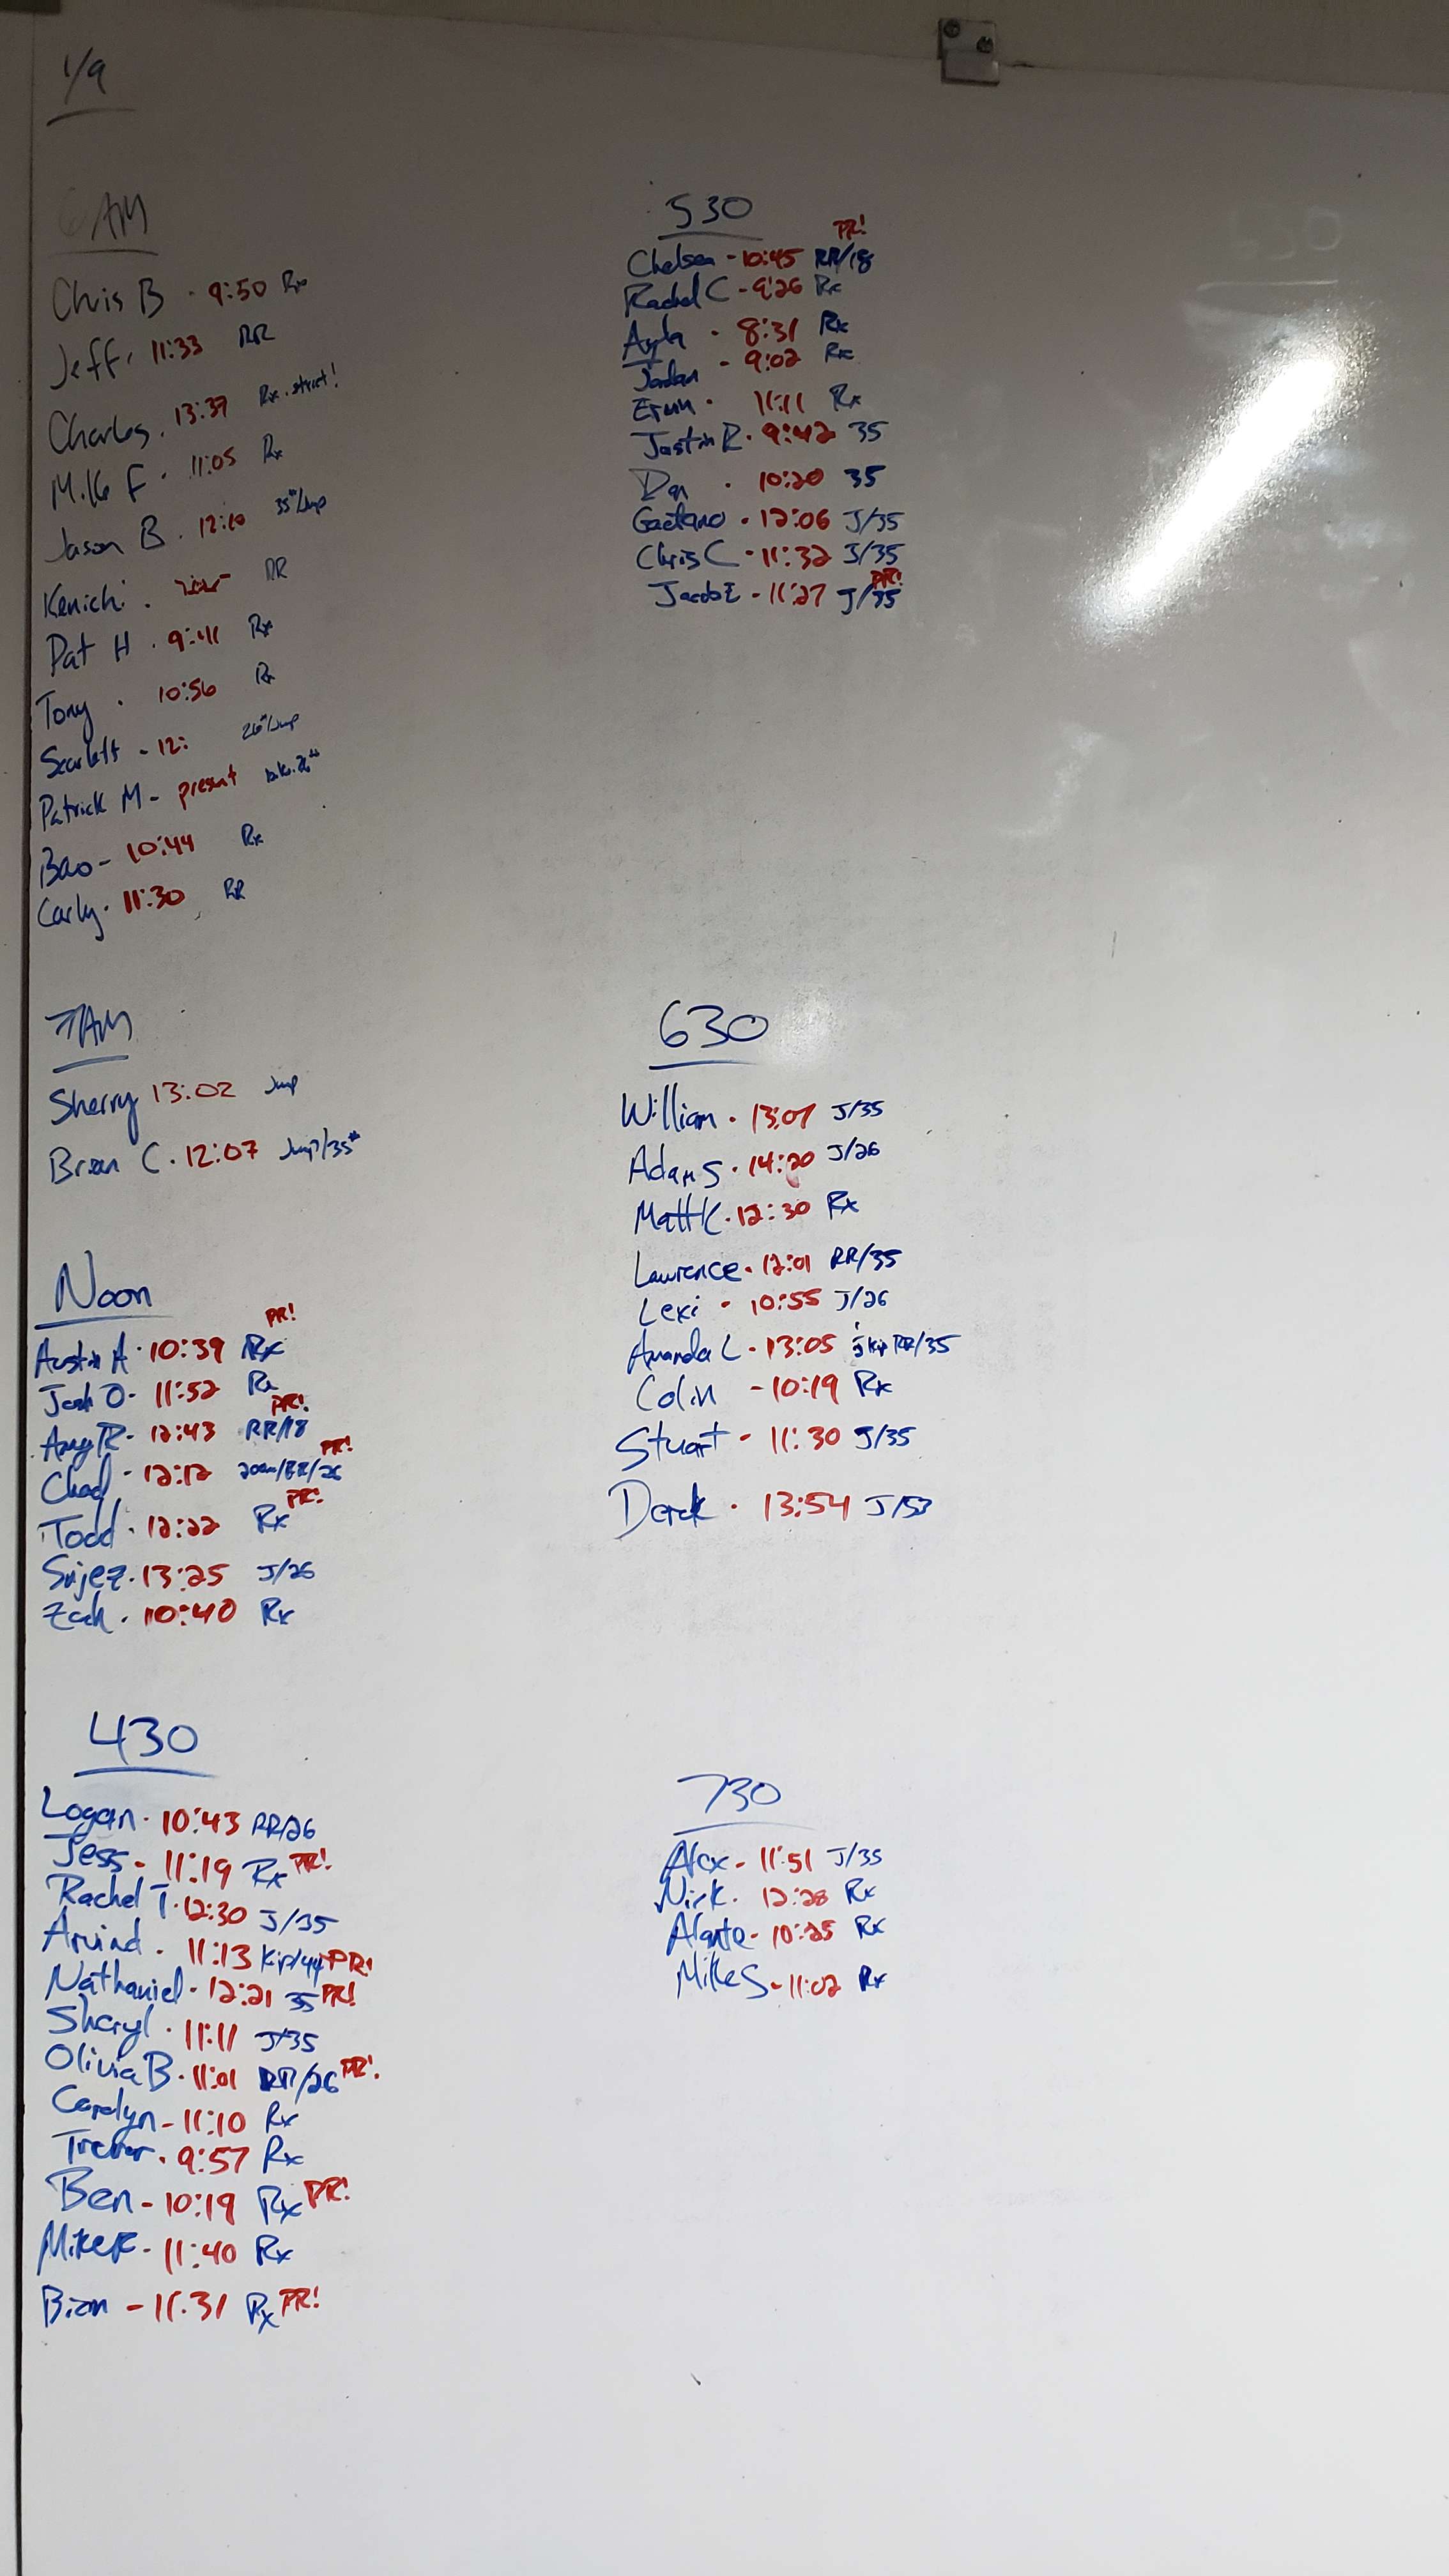 1/9
6AM
Chris B - 9:50 Rx
Jeff . 11:33 RR
Charles . 13:37 Rx . strict!
Mike F . 11:05 Rx
Jason B . 12:10 35#/Jump
Kenichi . RR
Pat H . 9:41 Rx
Tony . 10:56 Rx
Scarlett - 12: 26#/Jump
Patrick M - present
Bao - 10:44 Rx
Carly . 11:30 RR
7AM
Sherry 13:02 Jump
Brian C . 12:07 Jump/35#
Noon
PR!
Austin A . 10:39 Rx
Josh O - 11:52 Rx
PR!
Amy R - 12:43 RR/18
PR!
Chad - 12:12 200m/RR/26
PR!
Todd . 12:22 Rx
Sujez . 13:25 J/26
Zach . 10:40 Rx
430
Logan . 10:43 RR/26
Jess - 11:19 Rx PR!
Rachel T . 12:30 J/35
Arvind . 11:13 Kip/44 PR!
Nathaniel . 12:21 35 PR!
Sheryl . 11:11 J/35
Olivia B . 11:01 RR/26 PR!
Carolyn - 11:10 Rx
Trevor . 9:57 Rx
Ben - 10:19 Rx PR!
Mike R - 11:40 Rx
Brian - 11:31 Rx PR!
530
PR!
Chelsea - 10:45 RR/18
Rachel C - 9:26 Rx
Ayla . 8:31 Rx
Jordan - 9:02 Rx
Erin . 11:11 Rx
Justin R . 9:42 35
Dan . 10:20 35
Gaetano . 12:06 J/35
Chris C - 11:32 J/35
PR!
Jacob E - 11:27 J/35
630
William . 13:07 J/35
Adam S . 14:20 J/26
Matt K . 12:30 Rx
Lawrence . 12:01 RR/35
Lexi . 10:55 J/26
Amanda L - 13:05 RR/35
Colin - 10:19 Rx
Stuart - 11:30 J/35
Derek . 13:54 J/53
730
Alex - 11:51 J/35
Nick . 12:28 Rx
Alante - 10:25 Rx
Mike S - 11:02 Rx